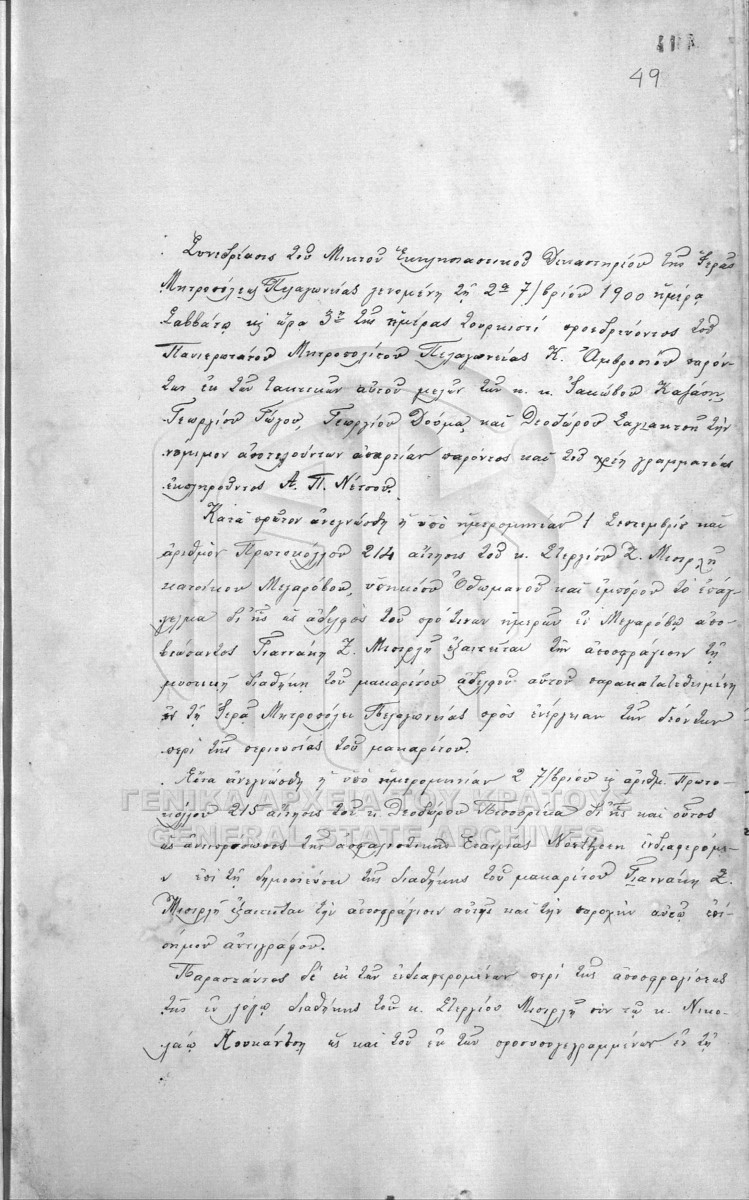 49
Συνεδρίασις τοῦ Μικτοῦ Ἐκκλησιαστικοῦ Δικαστηρίου τῆς Ἱερᾶς
Μητροπόλεως Πελαγωνείας γενομένη τῇ 2ᾳ 7/βρίου 1900 ἡμέρᾳ
Σαββάτῳ κ ὥρᾳ 3ῃ τῆς ἡμέρας τουρκιστί προεδρεύοντος τοῦ
Πανιερωτάτου Μητροπολίτου Πελαγωνείας Κ. Ἀμβροσίου παρόν-
των ἐκ τῶν τακτικῶν αὐτοῦ μελῶν τῶν κ. κ. Ἰακώβου Καζάση,
Γεωργίου Γώγου, Γεωργίου Δούμα, καὶ Θεοδώρου Σαγιακτσῆ τὴν
νόμιμον ἀποτελούντων ἀπαρτίαν παρόντος καὶ τοῦ χρέη γραμματέως
ἐκπληροῦντος Α. Π. Νέτσου.
Κατὰ πρῶτον ἀνεγνώσθη ἡ ὑπὸ ἡμερομηνίαν 1 Σεπτεμβρίου καὶ
ἀριθμὸν Πρωτοκόλλου 214 αἴτησις τοῦ κ. Στεργίου Ζ. Μισιρλῆ
κατοίκου Μεγαρόβου, ὑπηκόου Ὀθωμανοῦ καὶ ἐμπόρου τὸ ἐπάγ-
γελμα δι' ἧς ὡς ἀδελφὸς τοῦ πρό τινων ἡμερῶν ἐν Μεγαρόβῳ ἀπο-
βιώσαντος Γιαννάκη Ζ. Μισιρλῆ ἐξαιτεῖται τὴν ἀποσφράγισιν τῇ
μυστικῇ διαθήκῃ τοῦ μακαρίτου ἀδελφοῦ αὐτοῦ παρακατατεθειμένῃ
ἐν τῇ Ἱερᾷ Μητροπόλει Πελαγωνείας πρὸς ἐνέργειαν τῶν δεόντων
περὶ τῆς περιουσίας τοῦ μακαρίτου.
Εἶτα ἀνεγνώσθη ἡ ὑπὸ ἡμερομηνίαν 2 7/βρίου κ ἀριθμ. Πρωτο-
κόλλου 215 αἴτησις τοῦ κ. Θεοδώρου Πισσούρικα δι' ἧς καὶ οὗτος
ὡς ἀντιπρόσωπος τῆς ἀσφαλιστικῆς Ἑταιρίας Northern ἐνδιαφερόμε-
ν ἐπὶ τῇ δημοσιεύσει τῆς διαθήκης τοῦ μακαρίτου Γιαννάκη Ζ.
Μισιρλῆ ἐξαιτεῖται τὴν ἀποσφράγισιν αὐτῆς καὶ τὴν παροχὴν αὐτῷ ἐπι-
σήμου ἀντιγράφου.
Παραστάντος δὲ ἐκ τῶν ἐνδιαφερομένων περὶ τῆς ἀποσφραγίσεως
τῆς ἐν λόγῳ διαθήκης τοῦ κ. Στεργίου Μισιρλῆ σὺν τῷ κ. Νικο-
λάῳ Κουκάντση ὡς καὶ τοῦ ἐκ τῶν προσυπογεγραμμένων ἐν τῇ
ΓΕΝΙΚΑ ΑΡΧΕΙΑ ΤΟΥ ΚΡΑΤΟΥΣ
GENERAL STATE ARCHIVES